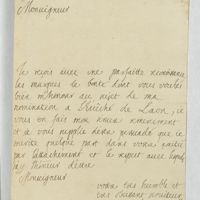 Monseigneur
Je reçois avec une parfaitte reconnoissance
les marques de bonté dont vous voulés
bien m'honorer au sujet de ma
nomination a l'Evêché de Laon, je
vous en fais mes
et vous supplie d'estre persuadé que je
merite quelque part dans votre amitié
par l'attachement et le respect avec lequel
j'ay l'honneur d'estre
Monseigneur
votre tres humble et
tres obeissant serviteur